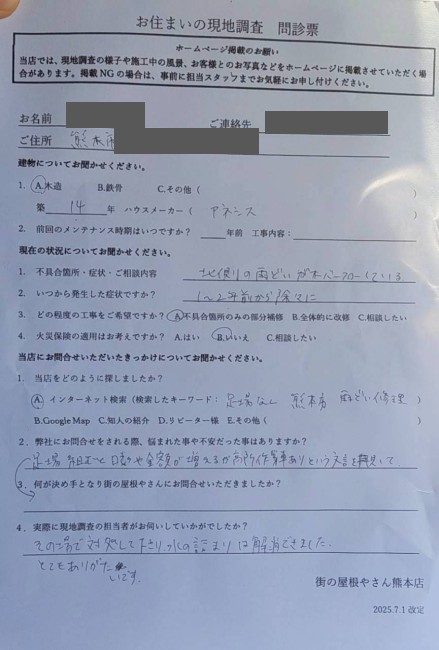 お住まいの現地調査 問診票
ホームページ掲載のお願い
当店では、現地調査の様子や施工中の風景、お客様とのお写真などをホームページに掲載させていただく場
合があります。掲載NGの場合は、事前に担当スタッフまでお気軽にお申し付けください。
お名前 ご連絡先
ご住所 熊本市
建物についてお聞かせください。
1. A.木造 B.鉄骨 C.その他 ( )
築 14 年 ハウスメーカー ( アネシス )
2. 前回のメンテナンス時期はいつですか? 年前 工事内容:
現在の状況についてお聞かせください。
1. 不具合箇所・症状・ご相談内容 の雨どいがオーバーフローしている
2. いつから発生した症状ですか? 1〜2年前から徐々に
3. どの程度の工事をご希望ですか? A.不具合箇所のみの部分補修 B.全体的に改修 C.相談したい
4. 火災保険の適用はお考えですか? A.はい B.いいえ C.相談したい
当店にお問合せいただいたきっかけについてお聞かせください。
1. 当店をどのように探しましたか?
A. インターネット検索 (検索したキーワード: 足場なし 熊本市 雨どい修理 )
B.Google Map C.知人の紹介 D.リピーター様 E.その他 ( )
2. 弊社にお問合せをされる際、悩まれた事や不安だった事はありますか?
足場 組むと日数や金額が増えるが高所作業車ありという文言を見て
3. 何が決め手となり街の屋根やさんにお問合せいただきましたか?
4. 実際に現地調査の担当者がお伺いしていかがでしたか?
その場で対処して下さり、水の詰まりは解消できました。
とてもありがたいです。
街の屋根やさん熊本店
2025.7.1 改定